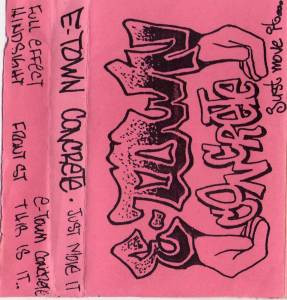 FULL EFFECT
HINDSIGHT
FRONT ST
E-TOWN CONCRETE
THIS IS IT..
E-TOWN CONCRETE • JUST MOVE IT
E-TOWN
CONCRETE
Just move it...